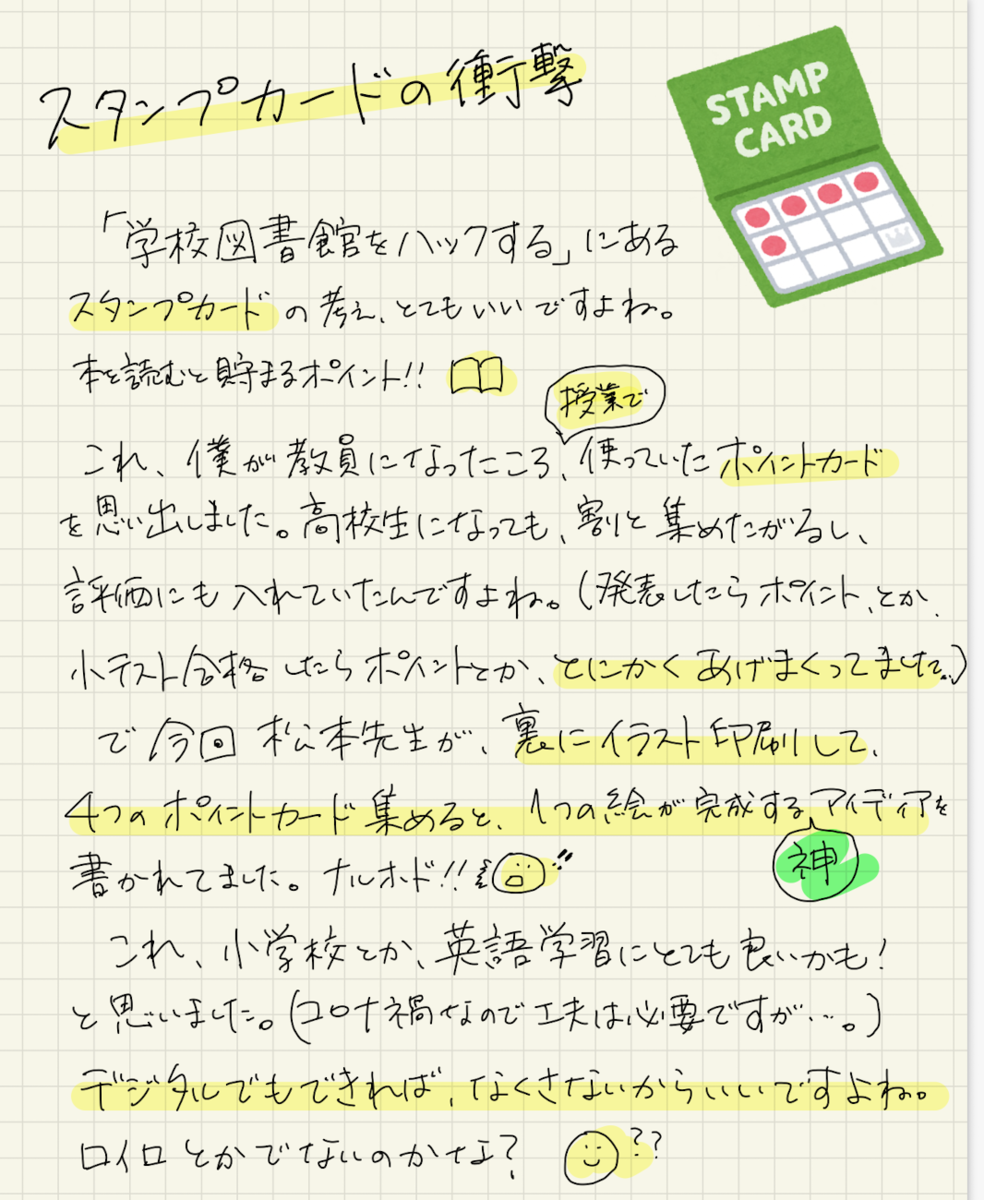 スタンプカードの衝撃
STAMP
CARD
「学校図書館をハックする」にある
スタンプカードの考え、とてもいいですよね。
本を読むと貯まるポイント!!
授業で
これ、僕が教員になったころ、使っていたポイントカード
を思い出しました。高校生になっても、割と集めたがるし、
評価にも入れていたんですよね。(発表したらポイント、とか、
小テスト合格したらポイントとか、とにかくあげまくってました。)
で今回松本先生が、裏にイラスト印刷して、
4つのポイントカード集めると、1つの絵が完成するアイディアを
神
書かれてました。ナルホド!!
これ、小学校とか、英語学習にとても良いかも!
と思いました。(コロナ禍なので工夫は必要ですが…。)
デジタルでもできれば、なくさないからいいですよね。
ロイロとかでないのかなぁ? ??